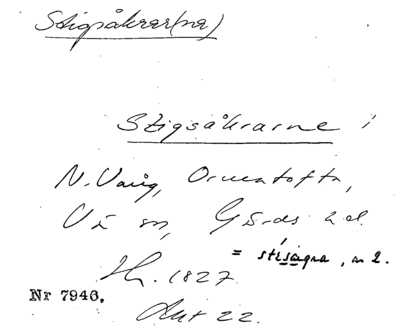 Stigsåkrar(na)
Stigsåkrarne i
N. Vång, Ormatofta,
Vä sn, Gärds hd.
= stisagra, n 2.
1827
Nr 7946.
Akt 22.